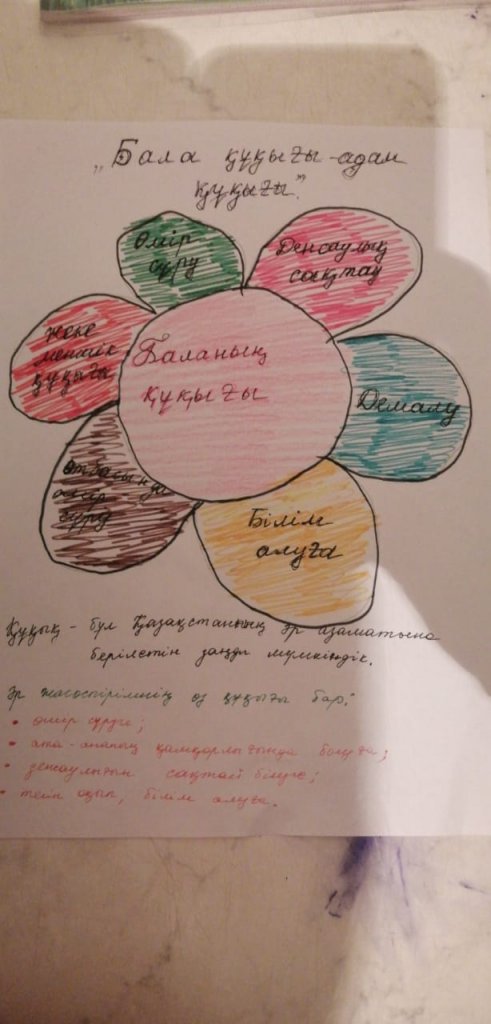 „Бала құқығы-адам
құқығы".
Өмір
сүру
Денсаулық
сақтау
Жеке
меншік
құқығы
Баланың
құқығы
Демалу
Отбасында
өмір
сүру
Білім
алуға
Құқық - бұл Қазақстанның әр азаматына
берілетін заңды мүмкіндік.
Әр жасөспірімнің өз құқығы бар:
• өмір сүруге;
• ата-ананың қамқорлығында болуға;
• денсаулығын сақтай білуге;
• тегін оқып, білім алуға.